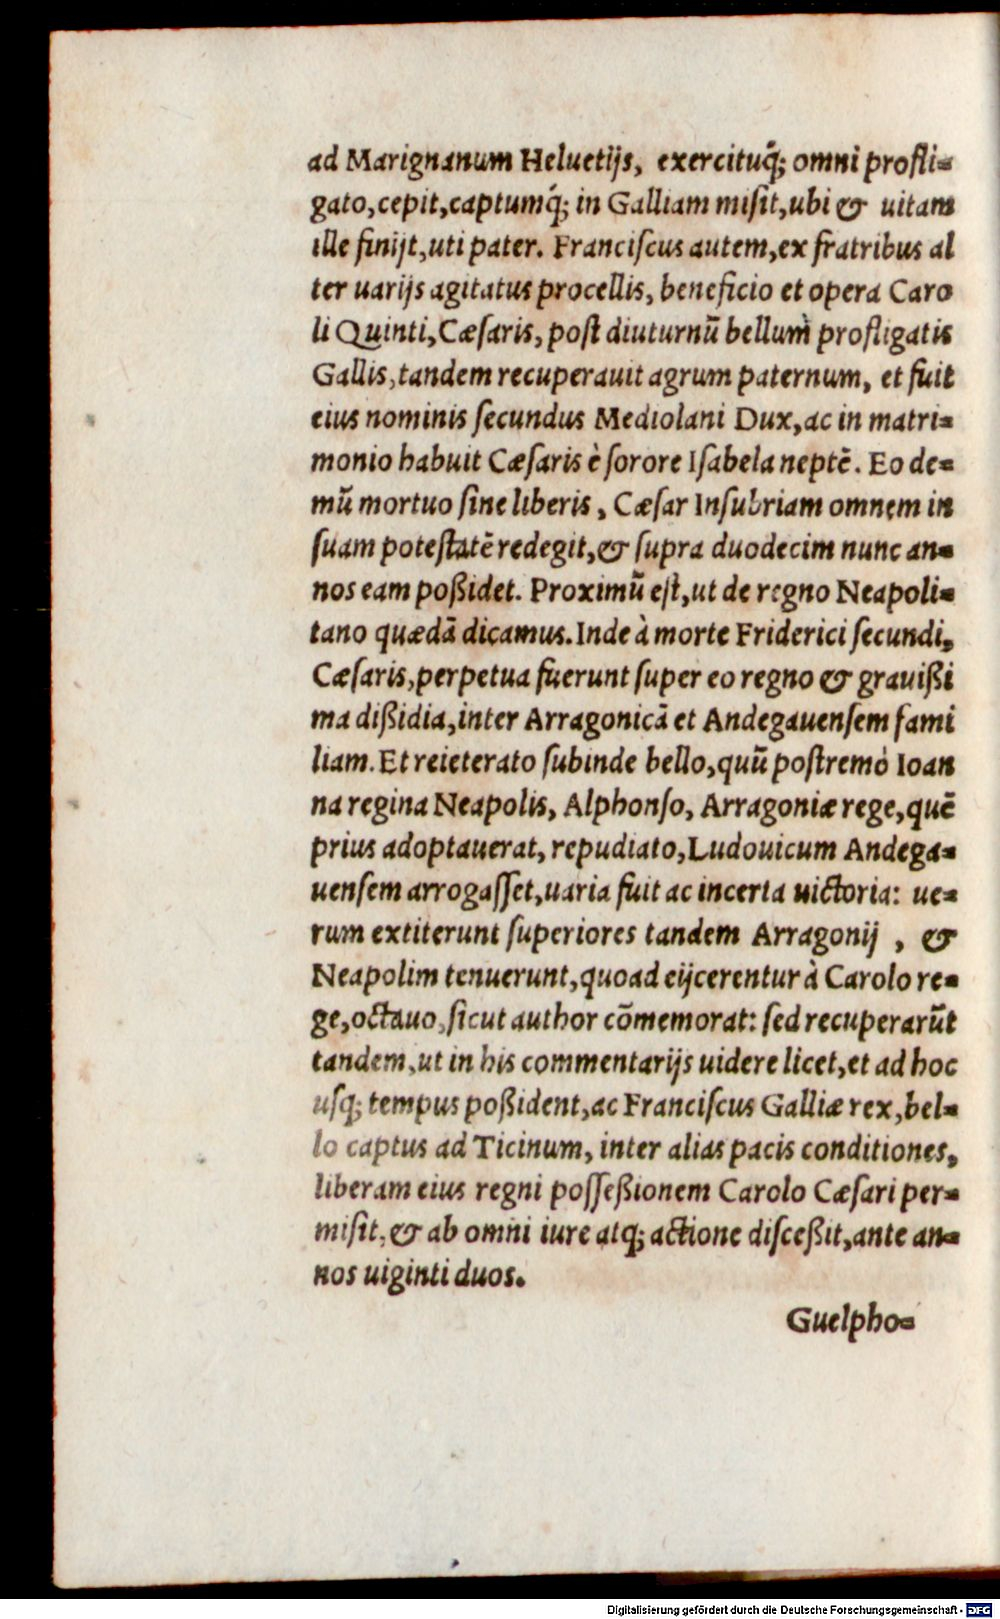 ad Marignanum Heluetijs, exercituq́; omni profli-
gato, cepit, captumq́; in Galliam misit, ubi & uitam
ille finijt, uti pater. Franciſcus autem, ex fratribus al
ter uarijs agitatus procellis, beneficio et opera Caro
li Quinti, Cæſaris, poſt diuturnū bellum profligatis
Gallis, tandem recuperauit agrum paternum, et fuit
eius nominis ſecundus Mediolani Dux, ac in matri-
monio habuit Cæſaris è ſorore Iſabela neptē. Eo de-
mū mortuo ſine liberis, Cæſar Inſubriam omnem in
ſuam poteſtatē redegit, & ſupra duodecim nunc an-
nos eam poßidet. Proximū eſt, ut de regno Neapoli-
tano quædā dicamus. Inde à morte Friderici ſecundi,
Cæſaris, perpetua fuerunt ſuper eo regno & grauißi
ma dißidia, inter Arragonicā et Andegauenſem fami
liam. Et reieterato ſubinde bello, quū poſtremò Ioan
na regina Neapolis, Alphonſo, Arragoniæ rege, quē
prius adoptauerat, repudiato, Ludouicum Andega-
uenſem arrogaſſet, uaria fuit ac incerta uictoria: ue-
rum extiterunt ſuperiores tandem Arragonij, &
Neapolim tenuerunt, quoad eijcerentur à Carolo re-
ge, octauo, ſicut author cōmemorat: ſed recuperarūt
tandem, ut in his commentarijs uidere licet, et ad hoc
uſq; tempus poßident, ac Franciſcus Galliæ rex, bel-
lo captus ad Ticinum, inter alias pacis conditiones,
liberam eius regni poſſeßionem Carolo Cæſari per-
miſit, & ab omni iure atq; actione diſceßit, ante an-
nos uiginti duos.
Guelpho-
Digitalisierung gefördert durch die Deutsche Forschungsgemeinschaft - DFG